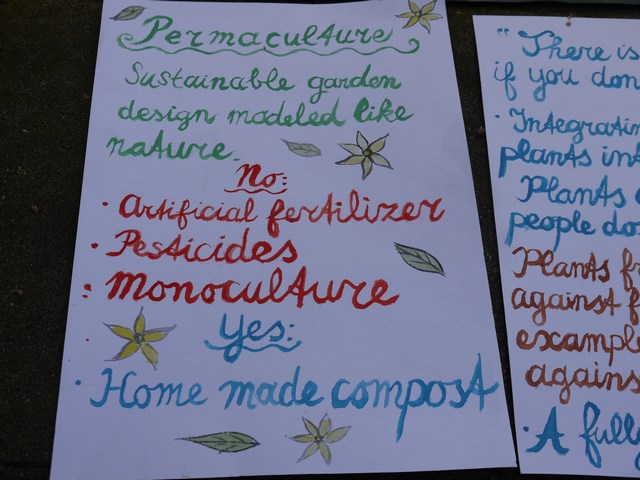 Permaculture
Sustainable garden
design modeled like
nature.
No:
· Artificial fertilizer
· Pesticides
: Monoculture
Yes:
· Home made compost
" There is
if you don
· Integratin
plants int
Plants
people do
Plants f
against f
example
agains
· A fully